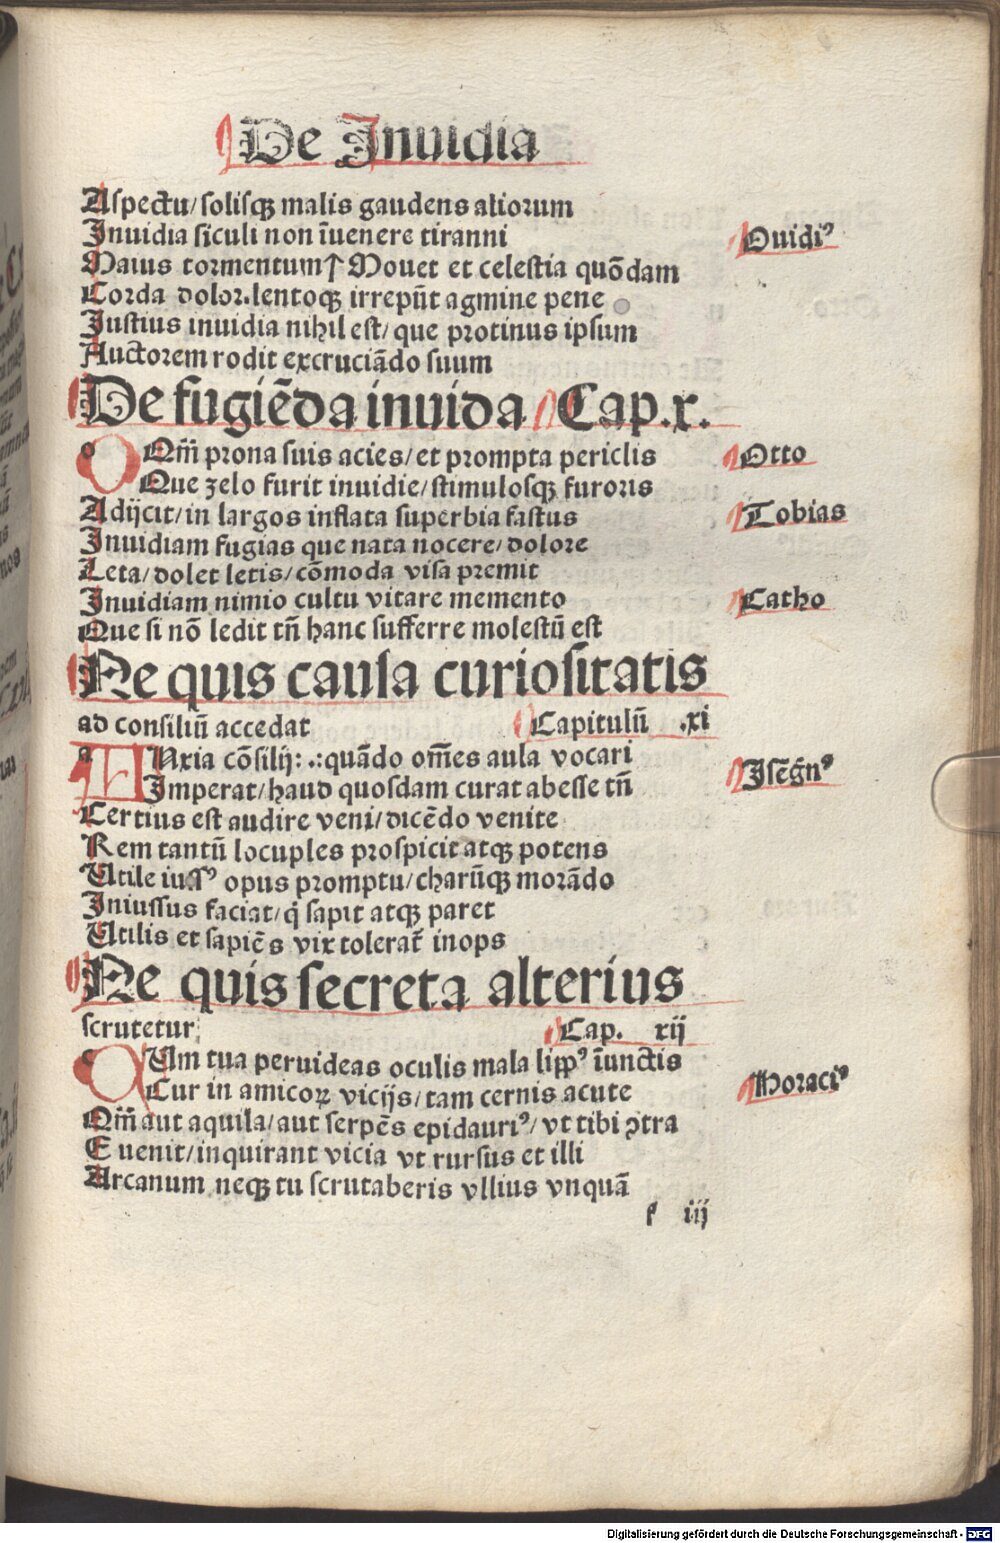 De Inuidia
Aſpectu/ſoliſqꝫ malis gaudens aliorum
Inuidia ſiculi non īuenere tiranni Ouidiꝰ
Maius tormentum Mouet et celeſtia quōdam
Corda dolor.lentoqꝫ irrepūt agmine pene
Iuſtius inuidia nihil eſt/que protinus ipſum
Auctorem rodit excruciādo ſuum
De fugiēda inuida Cap.x.
o Qm̄ prona ſuis acies/et prompta periclis Otto
Que zelo furit inuidie/ſtimuloſqꝫ furoris
Adijcit/in largos inflata ſuperbia faſtus Tobias
Inuidiam fugias que nata nocere/dolore
Leta/dolet letis/cōmoda viſa premit
Inuidiam nimio cultu vitare memento Catho
Que ſi nō ledit tn̄ hanc ſufferre moleſtū eſt
Ne quis cauſa curioſitatis
ad conſiliū accedat Capitulū .xi
a Nxia cōſilij:.:quādo om̄es aula vocari
Imperat/haud quoſdam curat abeſſe tn̄ Iſegn̄ꝰ
Certius eſt audire veni/dicēdo venite
Rem tantū locuples proſpicit atqꝫ potens
Utile opus promptu/charūqꝫ morādo
Iniuſſus faciat/q̇ ſapit atqꝫ paret
Utilis et ſapiēs vix tolerat̄ inops
Ne quis ſecreta alterius
ſcrutetur Cap. xij
c Um tua peruideas oculis mala lipp̄ꝰ īunctis
Cur in amicoꝝ vicijs/tam cernis acute Horaciꝰ
Qm̄ aut aquila/aut ſerpēs epidauriꝰ/vt tibi ꝯtra
Euenit/inquirant vicia vt rurſus et illi
Arcanum neqꝫ tu ſcrutaberis vllius vnquā
f iij
Digitalisierung gefördert durch die Deutsche Forschungsgemeinschaft - DFG